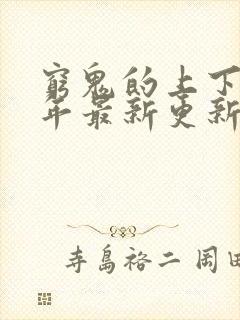 窮鬼的上下
年最新更新
寺島裕二 岡田